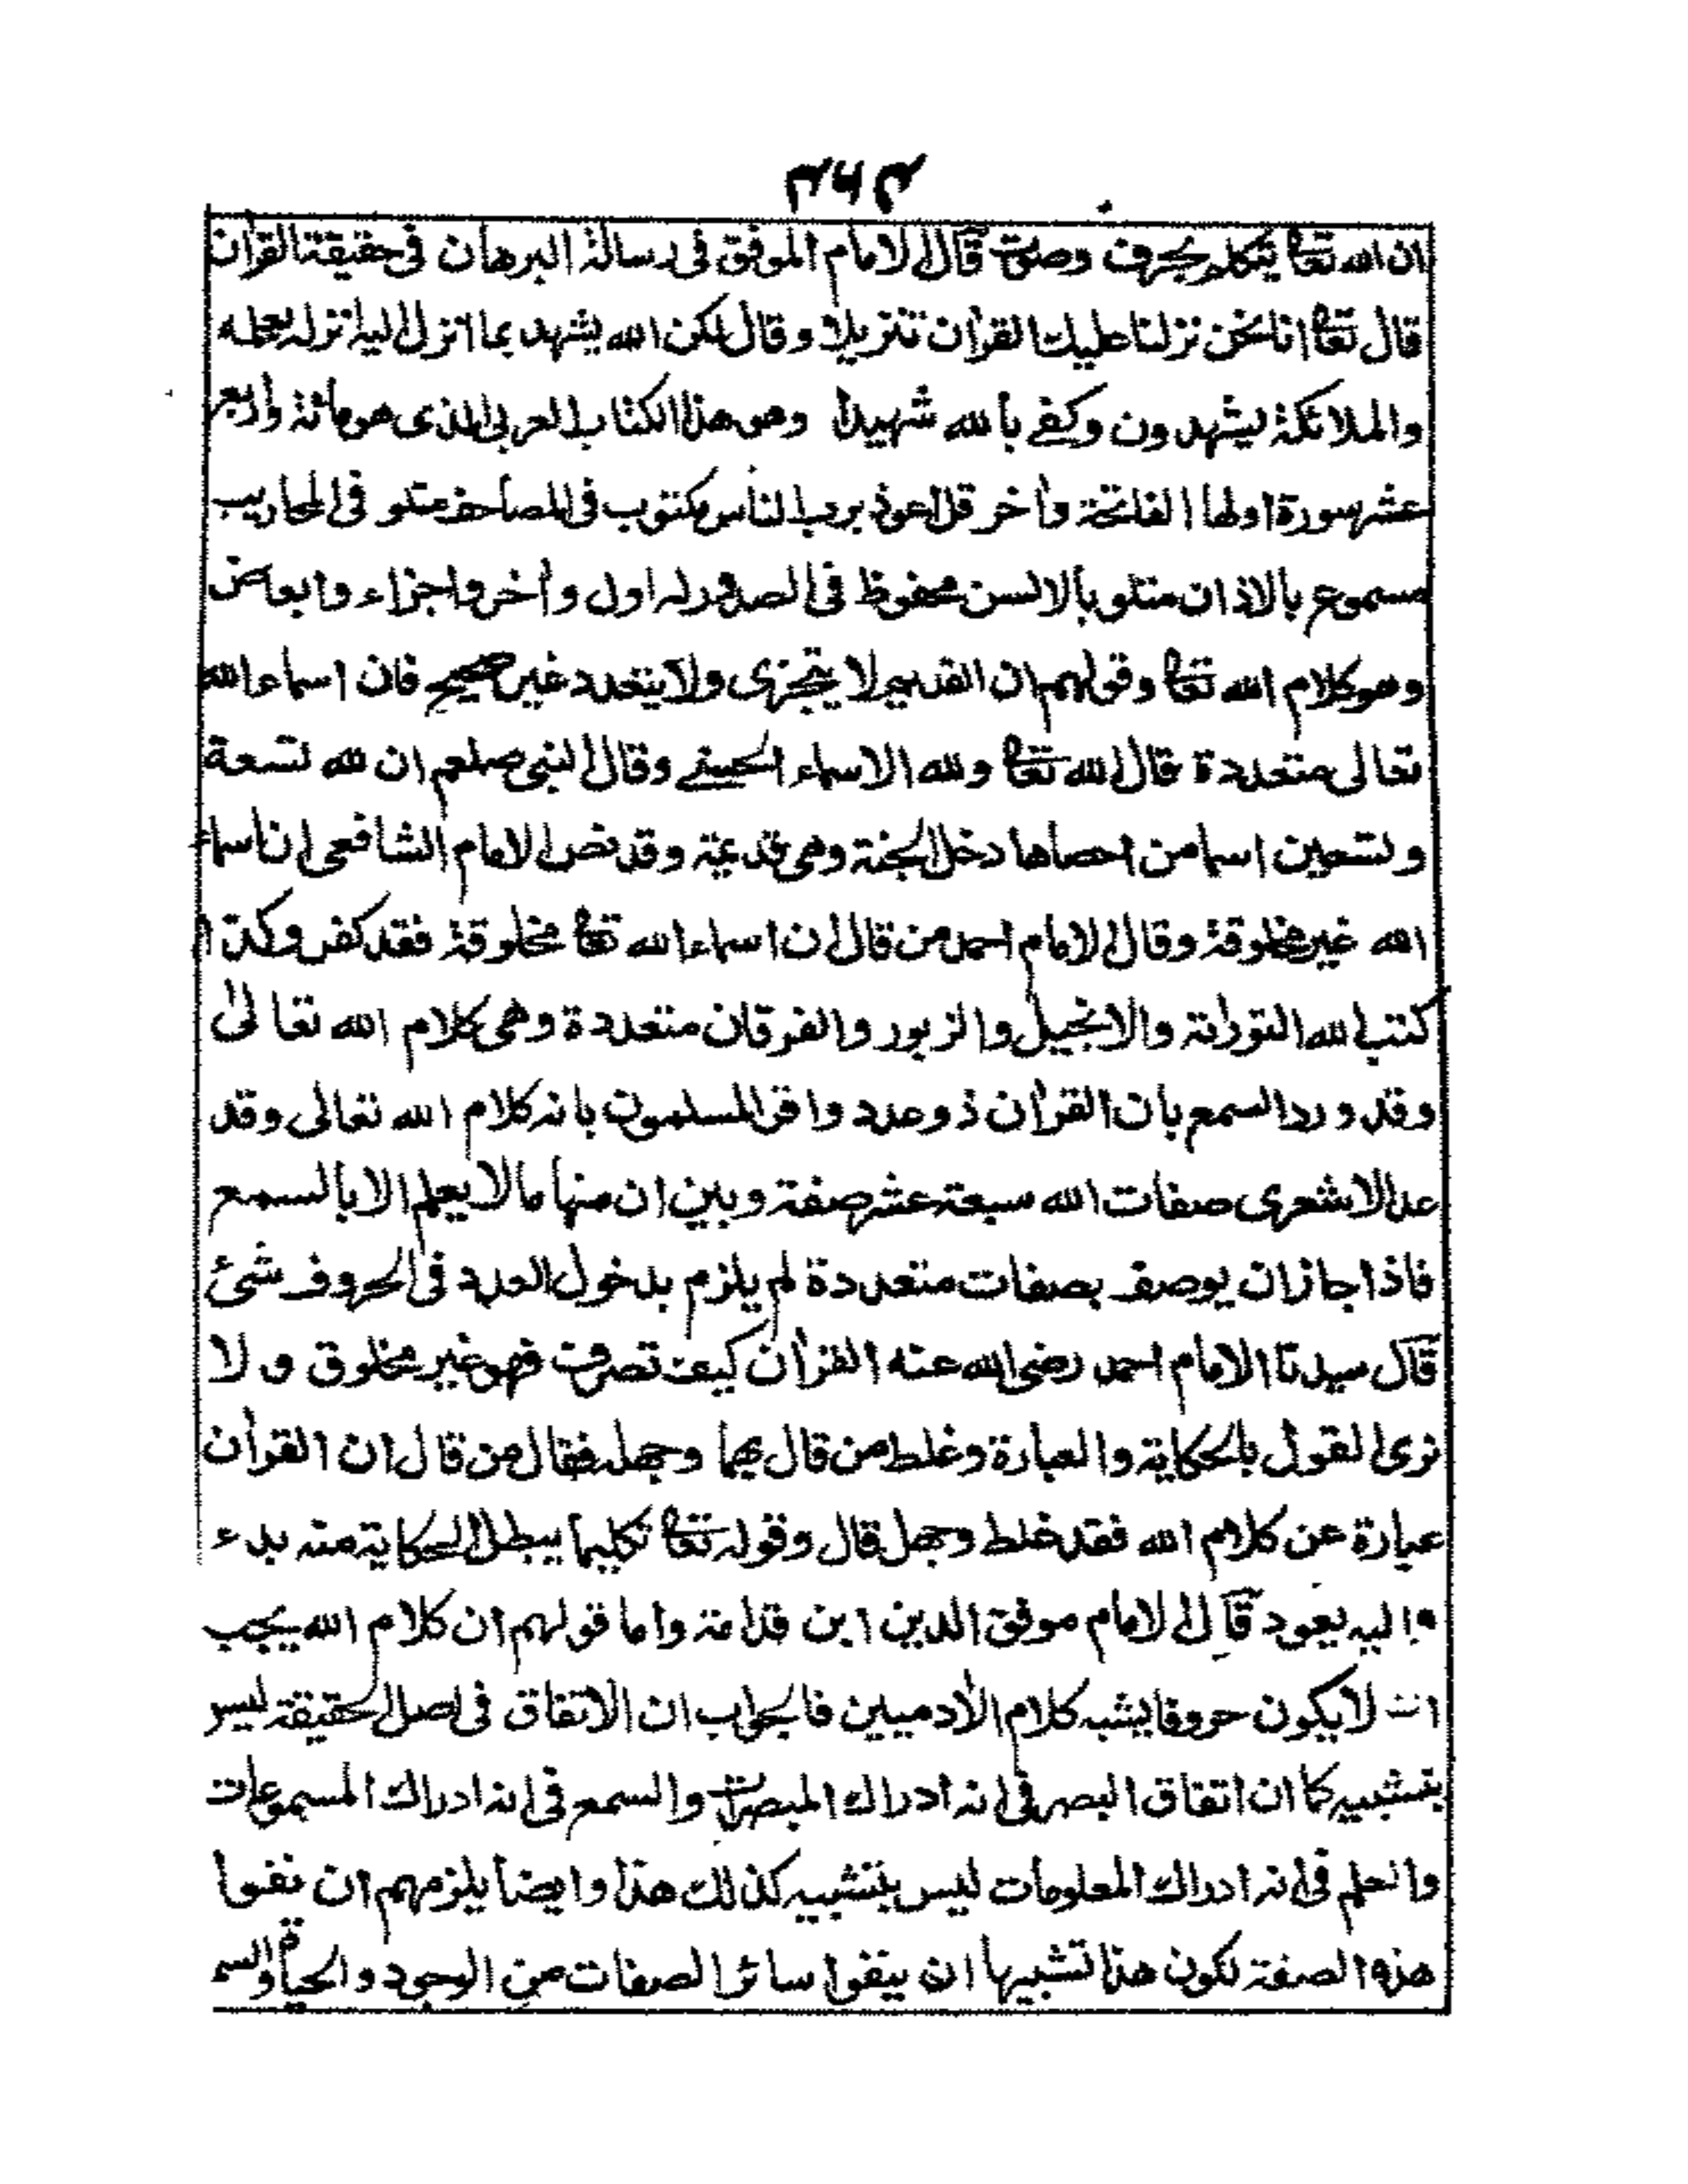 ۳۶۳
ان الله تعا يتكلم بحرف وصوت قال الامام الموفق فى رسالة البرهان فى حقيقة القرآن
قال تعا انا نحن نزلنا عليك القرآن تنزيلا وقال لكن الله يشهد بما انزل اليك انزله بعلمه
والملائكة يشهدون وكفى بالله شهيدا وهو هذا الكتاب العربى الذى هو مائة واربع
عشر سورة اولها الفاتحة وآخر قل اعوذ برب الناس مكتوب فى المصاحف متلو فى المحاريب
مسموع بالاذان متلو بالالسن محفوظ فى الصدور له اول وآخر واجزاء وابعاض
وهو كلام الله تعا وقولهم ان القديم لا يتجزى ولا يتعدد غير صحيح فان اسماء الله
تعالى متعددة قال الله تعا ولله الاسماء الحسنى وقال النبى صلعم ان لله تسعة
وتسعين اسما من احصاها دخل الجنة وهى قديمة وقد نص الامام الشافعى ان اسماء
الله غير مخلوقة وقال الامام احمد من قال ان اسماء الله تعا مخلوقة فقد كفر وكذا
كتب الله التوراة والانجيل والزبور والفرقان متعددة وهى كلام الله تعالى
وقد ورد السمع بان القرآن ذو عدد واقر المسلمون بانه كلام الله تعالى وقد
عد الاشعرى صفات الله سبعة عشر صفة وبين ان منها ما لا يعلم الا بالسمع
فاذا جاز ان يوصف بصفات متعددة لم يلزم بدخول العدد فى الحروف شئ
قال سيدنا الامام احمد رضى الله عنه القرآن كيف تصرف فهو غير مخلوق ولا
نرى القول بالحكاية والعبارة وغلط من قال بهما وجهله فقال من قال ان القرآن
عبارة عن كلام الله فقد غلط وجهل قال وقوله تعا تكليما يبطل الحكاية منه بدء
واليه يعود قال الامام موفق الدين ابن قدامة واما قولهم ان كلام الله يجب
ان لا يكون حروفا يشبه كلام الآدميين فالجواب ان الاتفاق فى اصل الحقيقة ليس
بتشبيه كما ان اتفاق البصر فى انه ادراك المبصرات والسمع فى انه ادراك المسموعات
والعلم فى انه ادراك المعلومات ليس بتشبيه كذلك هذا وايضا يلزمهم ان نفوا
هذه الصفة لكون هذا تشبيها ان ينفوا سائر الصفات من الوجود والحياة والسم